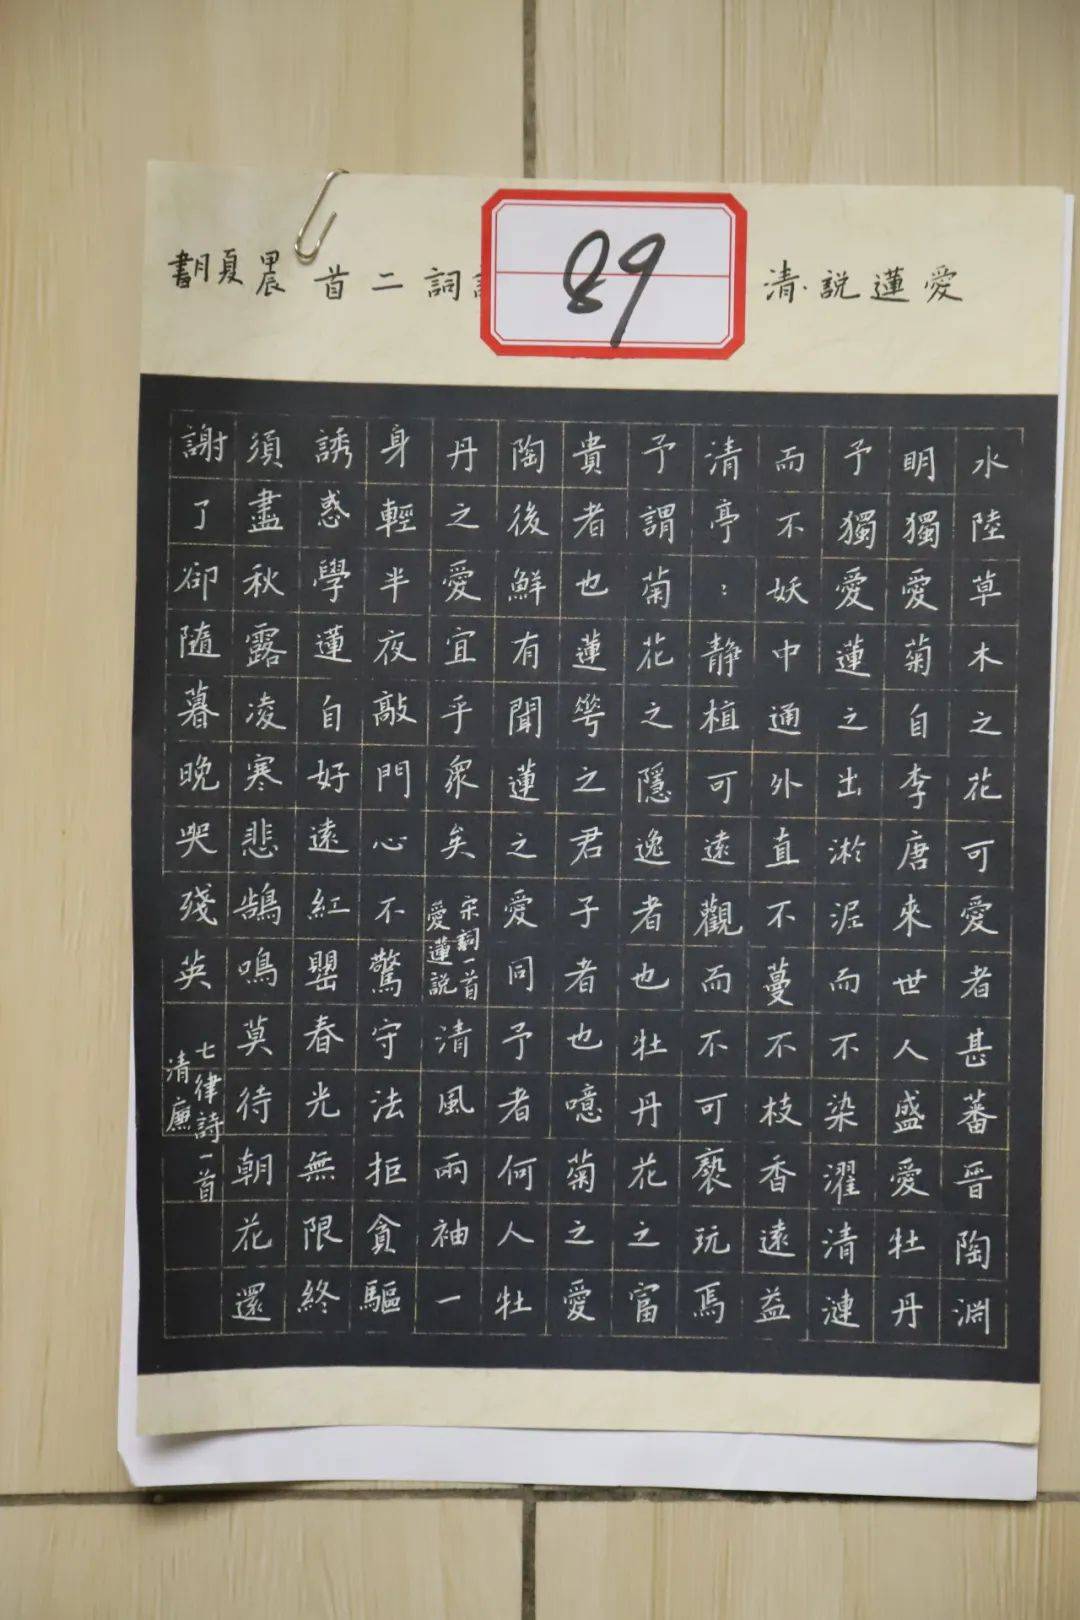 愛蓮説·清
詞二首
甲辰
夏月書
89
水陸草木之花可愛者甚蕃晉陶淵
明獨愛菊自李唐來世人盛愛牡丹
予獨愛蓮之出淤泥而不染濯清漣
而不妖中通外直不蔓不枝香遠益
清亭：静植可遠觀而不可褻玩焉
予謂菊花之隱逸者也牡丹花之富
貴者也蓮之君子者也噫菊之愛
陶後鮮有聞蓮之愛同予者何人牡
丹之愛宜乎衆矣
宋詞一首
愛蓮説
清風兩袖一
身輕半夜敲門心不驚守法拒貪驅
誘惑學蓮自好遠紅罌春光無限終
須盡秋露凌寒悲鵠鳴莫待朝花還
謝了卻隨暮晚哭殘英
七律詩一首
清廉